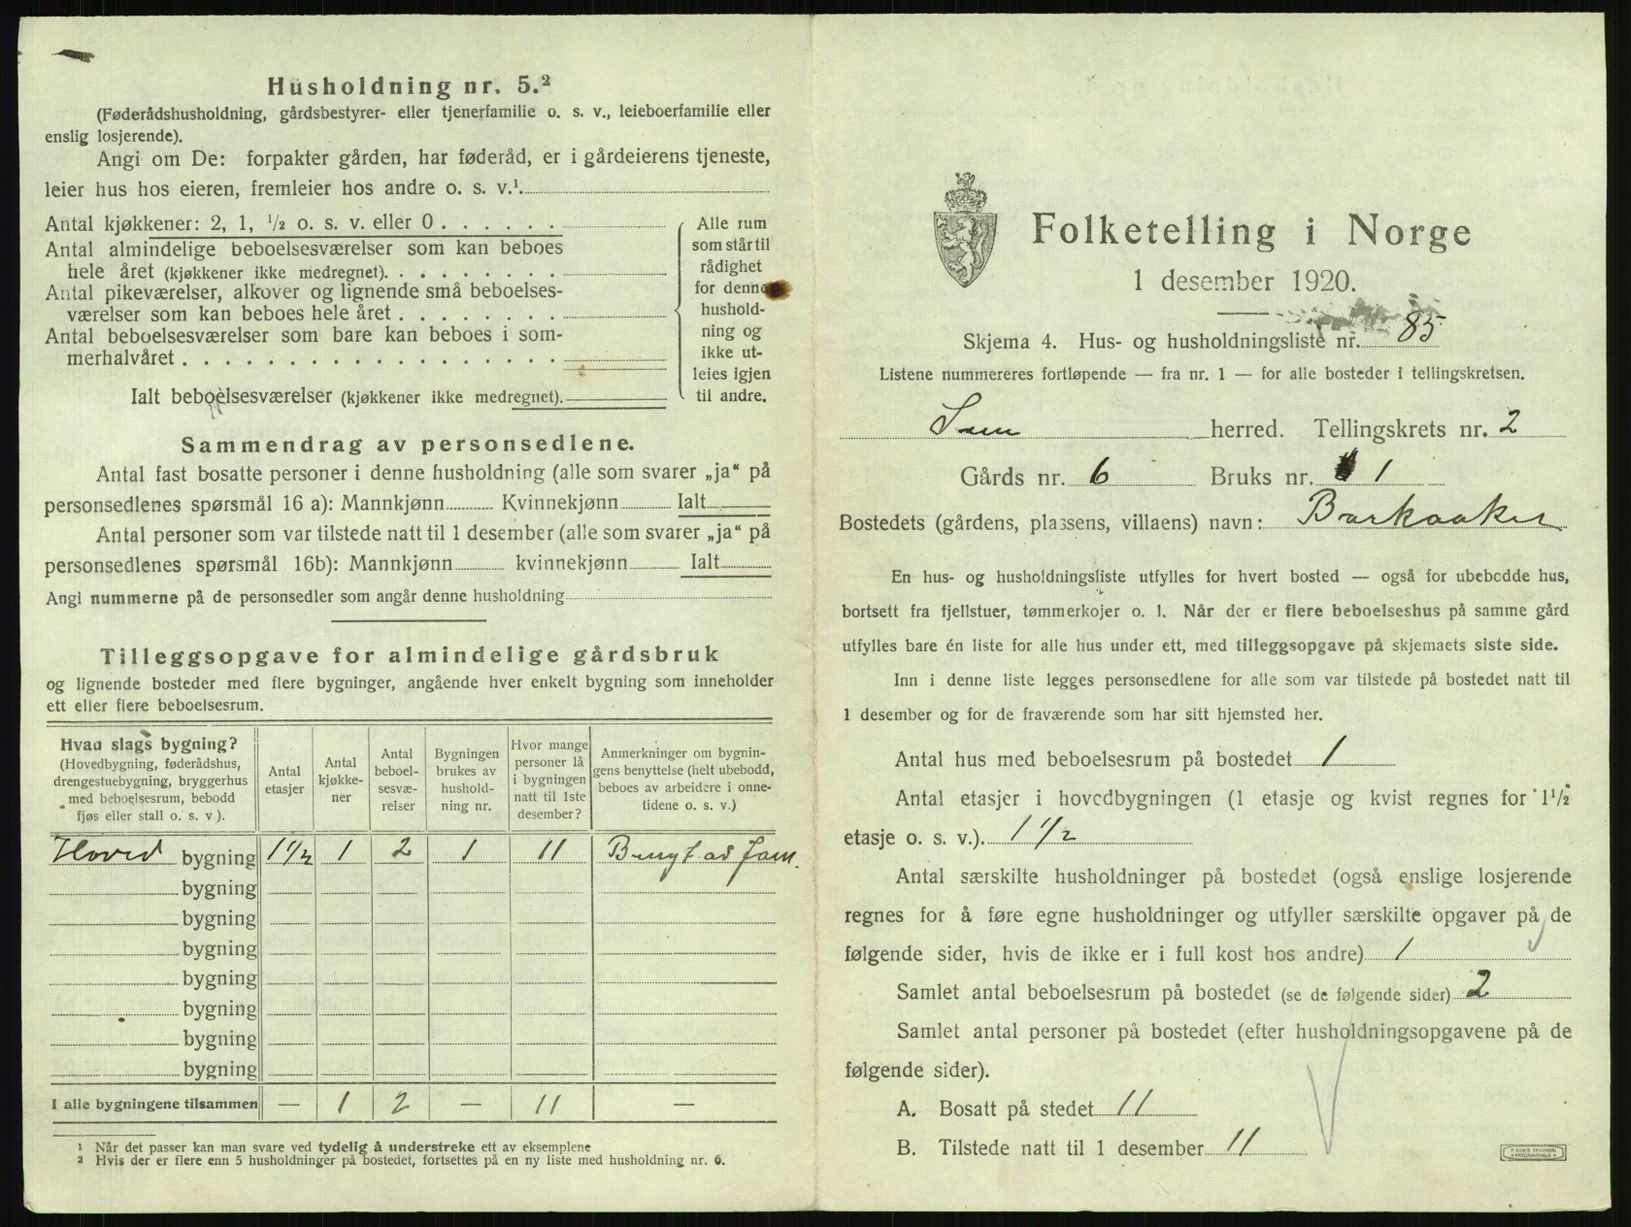 Husholdning nr. 5.²
(Føderådshusholdning, gårdsbestyrer- eller tjenerfamilie o. s. v., leieboerfamilie eller
enslig losjerende).
Angi om De: forpakter gården, har føderåd, er i gårdeierens tjeneste,
leier hus hos eieren, fremleier hos andre o. s. v.¹
Antal kjøkkener: 2, 1, ¹/₂ o. s. v. eller 0
Antal almindelige beboelsesværelser som kan beboes
hele året (kjøkkener ikke medregnet).
Antal pikeværelser, alkover og lignende små beboelses-
værelser som kan beboes hele året
Antal beboelsesværelser som bare kan beboes i som-
merhalvåret
Ialt beboelsesværelser (kjøkkener ikke medregnet).
Alle rum
som står til
rådighet
for denne
hushold-
ning og
ikke ut-
leies igjen
til andre.
Sammendrag av personsedlene.
Antal fast bosatte personer i denne husholdning (alle som svarer „ja“ på
personsedlenes spørsmål 16 a): Mannkjønn Kvinnekjønn Ialt
Antal personer som var tilstede natt til 1 desember (alle som svarer „ja“ på
personsedlenes spørsmål 16b): Mannkjønn kvinnekjønn Ialt
Angi nummerne på de personsedler som angår denne husholdning
Tilleggsopgave for almindelige gårdsbruk
og lignende bosteder med flere bygninger, angående hver enkelt bygning som inneholder
ett eller flere beboelsesrum.
Hvad slags bygning?
(Hovedbygning, føderådshus,
drengestuebygning, bryggerhus
med beboelsesrum, bebodd
fjøs eller stall o. s. v).
Antal
etasjer
Antal
kjøkke-
ner
Antal
beboel-
sesvæ-
relser
Bygningen
brukes av
hushold-
ning nr.
Hvor mange
personer lå
i bygningen
natt til 1ste
desember?
Anmerkninger om bygnin-
gens benyttelse (helt ubebodd,
beboes av arbeidere i onne-
tidene o. s. v.)
Hoved bygning 1½ 1 2 1 11
bygning
bygning
bygning
bygning
bygning
bygning
bygning
I alle bygningene tilsammen — 1 2 — 11 —
¹ Når det passer kan man svare ved tydelig å understreke ett av eksemplene
² Hvis der er flere enn 5 husholdninger på bostedet, fortsettes på en ny liste med husholdning nr. 6.
Folketelling i Norge
1 desember 1920.
Skjema 4. Hus- og husholdningsliste nr. 85
Listene nummereres fortløpende — fra nr. 1 — for alle bosteder i tellingskretsen.
Sem herred. Tellingskrets nr. 2
Gårds nr. 6 Bruks nr. 1
Bostedets (gårdens, plassens, villaens) navn: Barkaaker
En hus- og husholdningsliste utfylles for hvert bosted — også for ubebodde hus,
bortsett fra fjellstuer, tømmerkojer o. l. Når der er flere beboelseshus på samme gård
utfylles bare én liste for alle hus under ett, med tilleggsopgave på skjemaets siste side.
Inn i denne liste legges personsedlene for alle som var tilstede på bostedet natt til
1 desember og for de fraværende som har sitt hjemsted her.
Antal hus med beboelsesrum på bostedet 1
Antal etasjer i hovedbygningen (1 etasje og kvist regnes for 1¹/₂
etasje o. s. v.). 1½
Antal særskilte husholdninger på bostedet (også enslige losjerende
regnes for å føre egne husholdninger og utfyller særskilte opgaver på de
følgende sider, hvis de ikke er i full kost hos andre) 1
Samlet antal beboelsesrum på bostedet (se de følgende sider) 2
Samlet antal personer på bostedet (efter husholdningsopgavene på de
følgende sider).
A. Bosatt på stedet 11
B. Tilstede natt til 1 desember 11